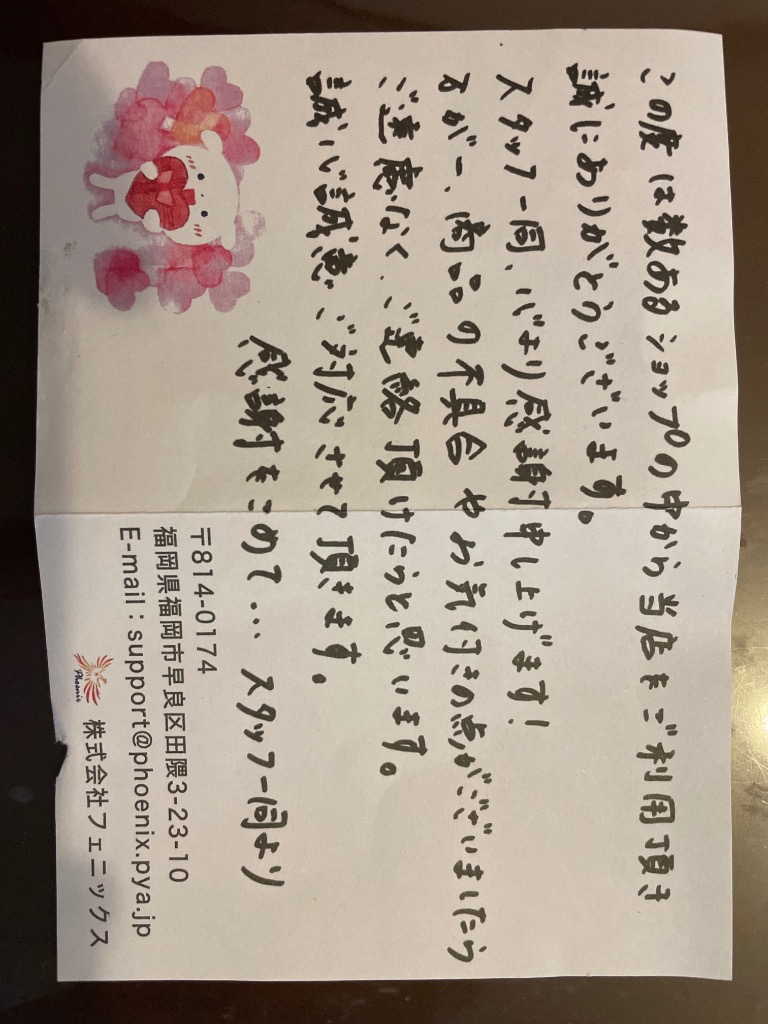 この度は数あるショップの中から当店をご利用頂き
誠にありがとうございます。
スタッフ一同、心より感謝申し上げます!
万が一、商品の不具合やお気付きの点がございましたら
ご遠慮なく、ご連絡頂けたらと思います。
誠心誠意ご対応させて頂きます。
感謝をこめて... スタッフ一同より
〒814-0174
福岡県福岡市早良区田隈3-23-10
E-mail:support@phoenix.pya.jp
Phoenix
株式会社フェニックス